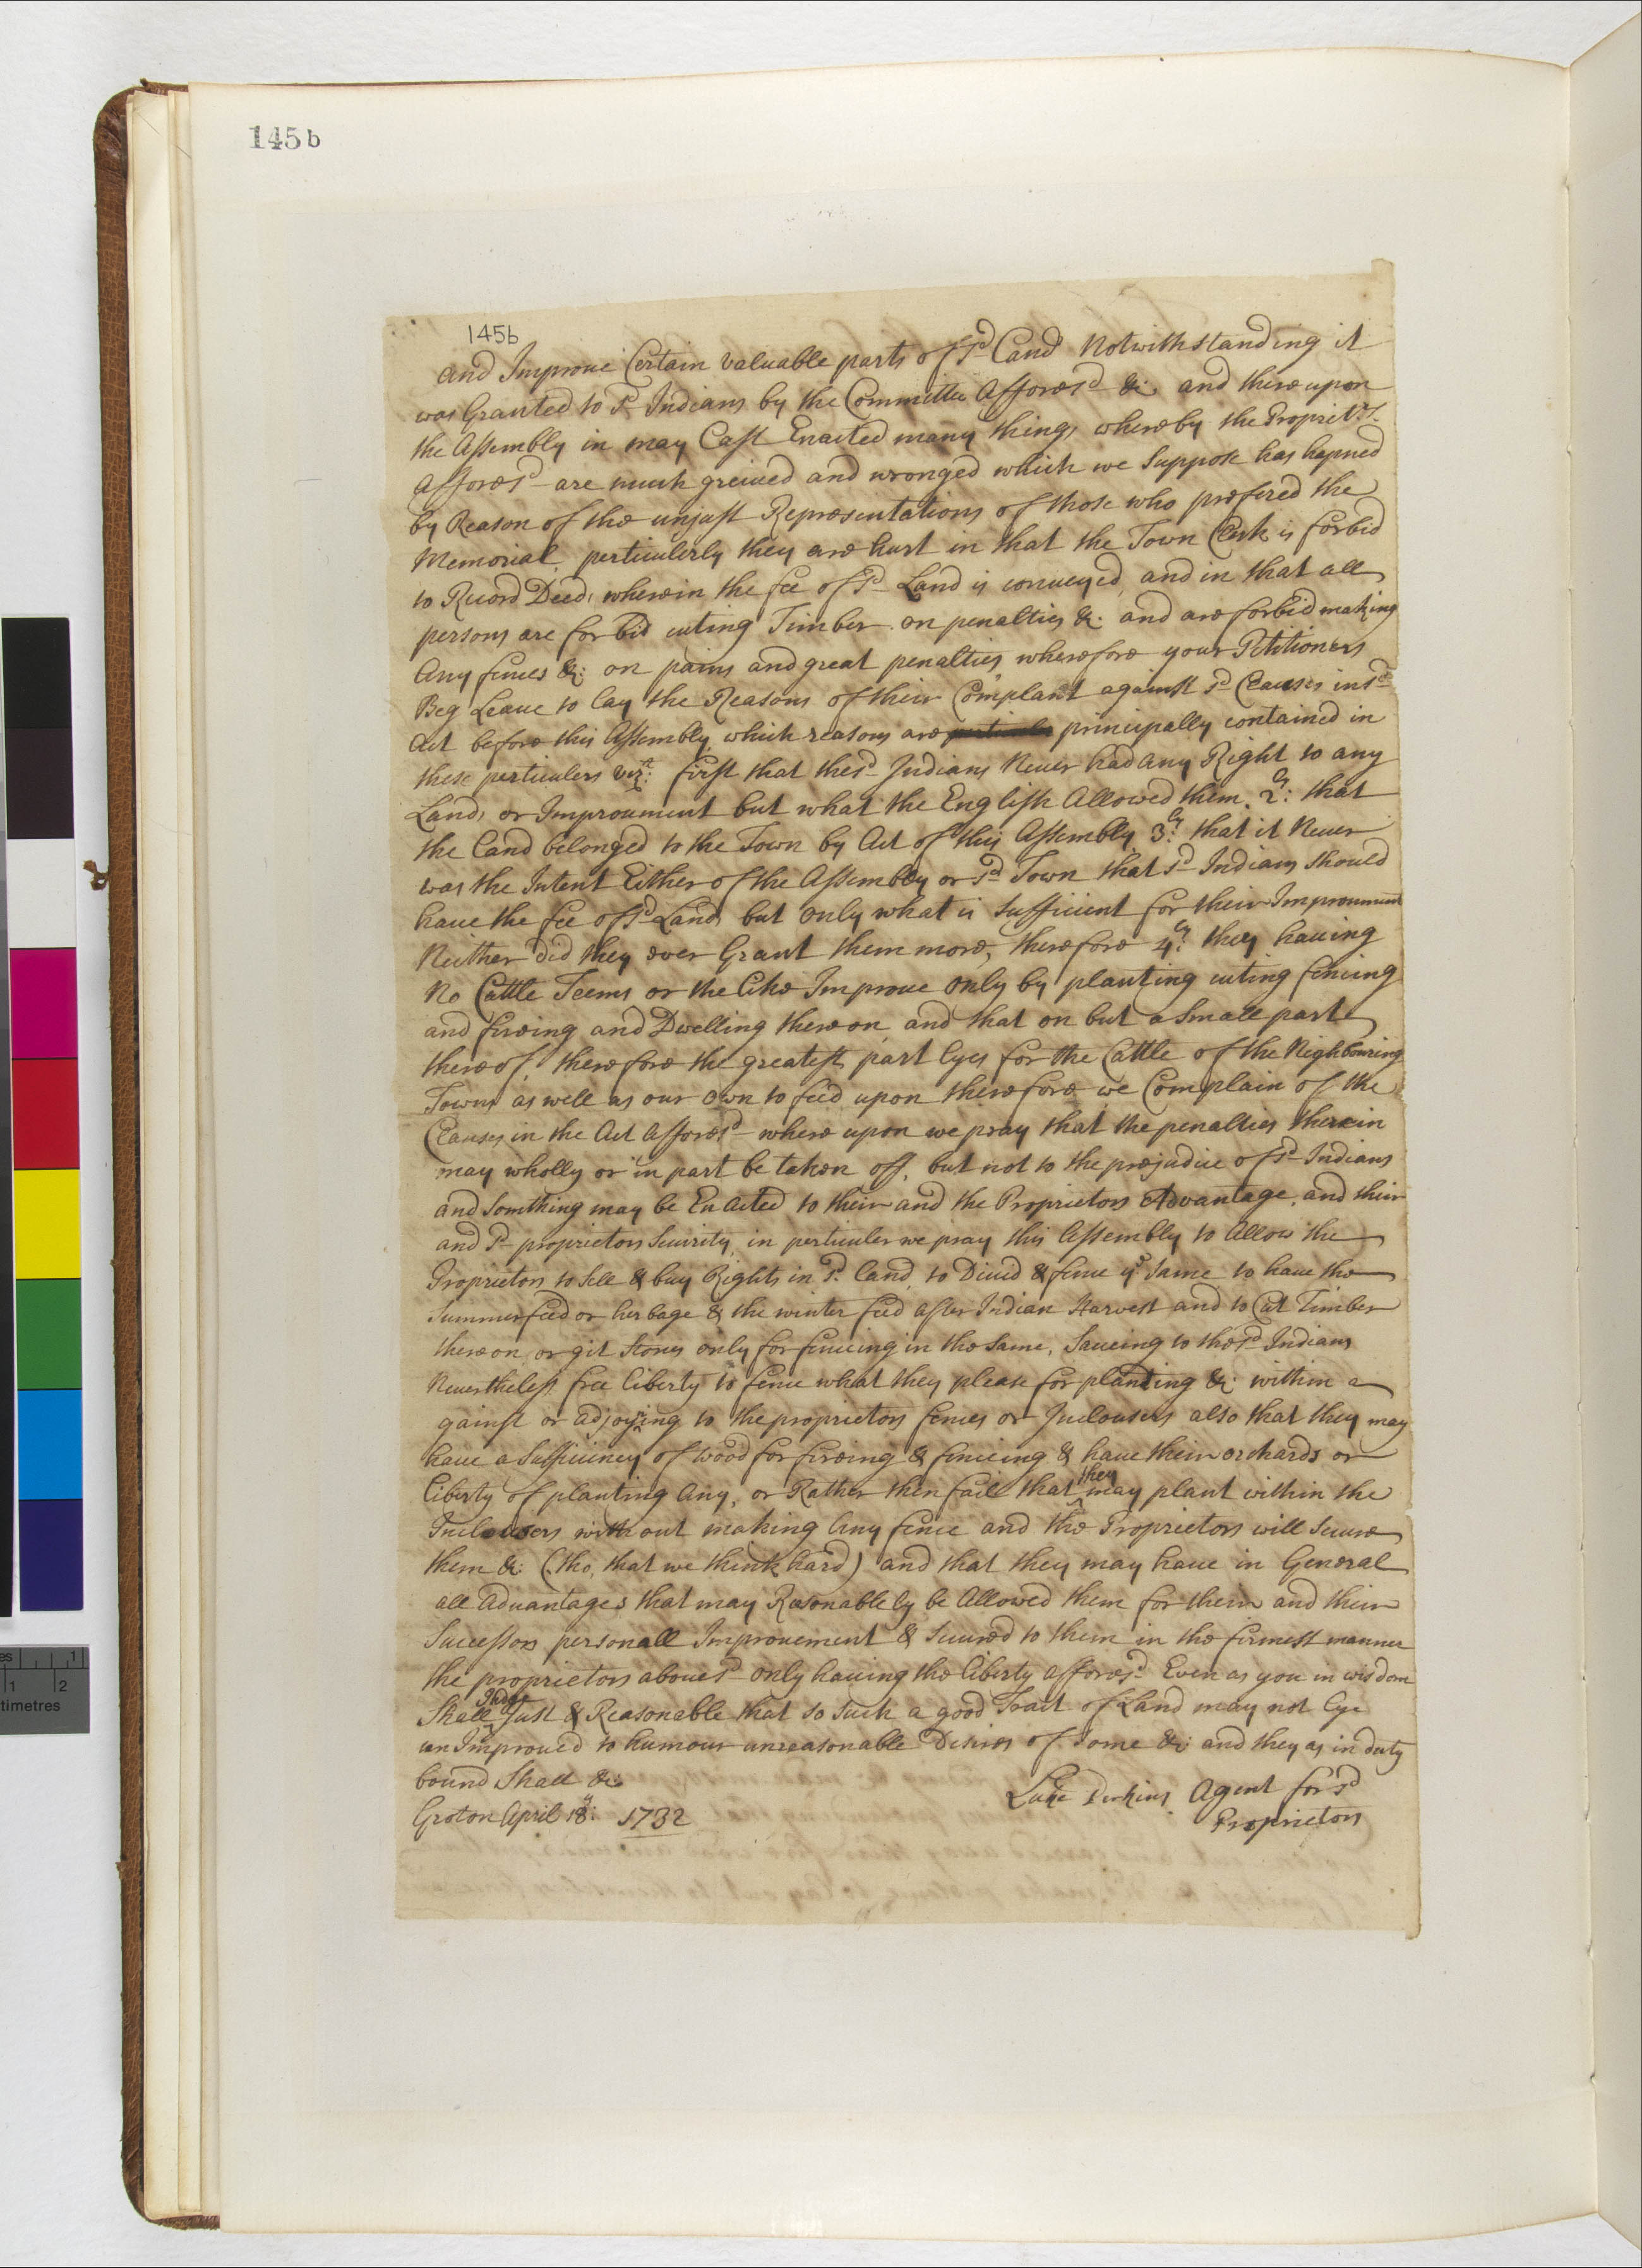 145b
145b
and Improve Certain valuable parts of sd Land Notwithstanding it
was Granted to sd Indians by the Committee Afforesd &c and thereupon
the Assembly in may Last Enacted many things whereby the Propriet.rs
afforesd are much greived and wronged which we Suppose has hapned
by Reason of the unjust Representations of those who prefered the
Memorial, perticulerly they are hurt in that the Town Clerk is forbid
to Record Deeds wherein the fee of sd Land is conveyed, and in that all
persons are forbid cuting Timber on penalties &c. and are forbid making
Any fences &c: on pains and great penalties, wherefore your Petitioners
Beg Leave to lay the Reasons of their Complaint against sd Clauses in sd
Act before this Assembly, which reasons are principally contained in
these perticulers viz: first that the sd Indians Never had any Right to any
Lands or Improvment but what the English Allowed them. 2ly: that
the Land belonged to the Town by Act of this Assembly 3ly: that it Never
was the Intent Either of the Assembly or sd Town that sd Indians should
have the fee of sd Land, but only what is sufficient for their Improvment
Neither did they ever Grant them more, therefore 4ly: they having
No Cattle Teems or the like Improve only by planting cuting fencing
and fireing and Dwelling thereon, and that on but a Small part
thereof, therefore the greatest part lyes for the Cattle of the Nighbouring
Towns as well as our own to feed upon therefore we Complain of the
Clauses in the Act afforesd where upon we pray that the penalties therein
may wholly or in part be taken off, but not to the prejudice of sd Indians
and Somthing may be Enacted to their and the Proprietors Advantage, and their
and sd proprietors Security, in perticuler we pray this Assembly to Allow the
Proprietors to Sell & buy Rights in sd. land, to Divid & fence ye same to have the
Summer feed or herbage & the winter feed after Indian Harvest and to Cut Timber
thereon or git Stones only for fenceing in the same, Saveing to the sd Indians
Nevertheless free liberty to fence what they please for planting &c within a
gainst or adjoyning to the proprietors fences or Inclousers also that they may
have a Sufficiency of wood for fireing & fenceing & have their orchards or
liberty of planting any, or Rather then fail that they may plant within the
Inclousers without making Any fence and the Proprietors will Secure
them &c (tho, that we think hard) and that they may have in General
all advantages that may Resonablely be Allowed them for their and their
Successors personall Improvement & Secured to them in the firmest manner
the proprietors abovesd only having the liberty afforesd Even as you in wisdom
Shall Judge Just & Reasonable that so such a good Tract of Land may not Lye
un Improved to humour unreasonable Desires of some &c and they as in duty
bound Shall &c
Luke Perkins Agent for sd
Groton April 18: 1732
Proprietors